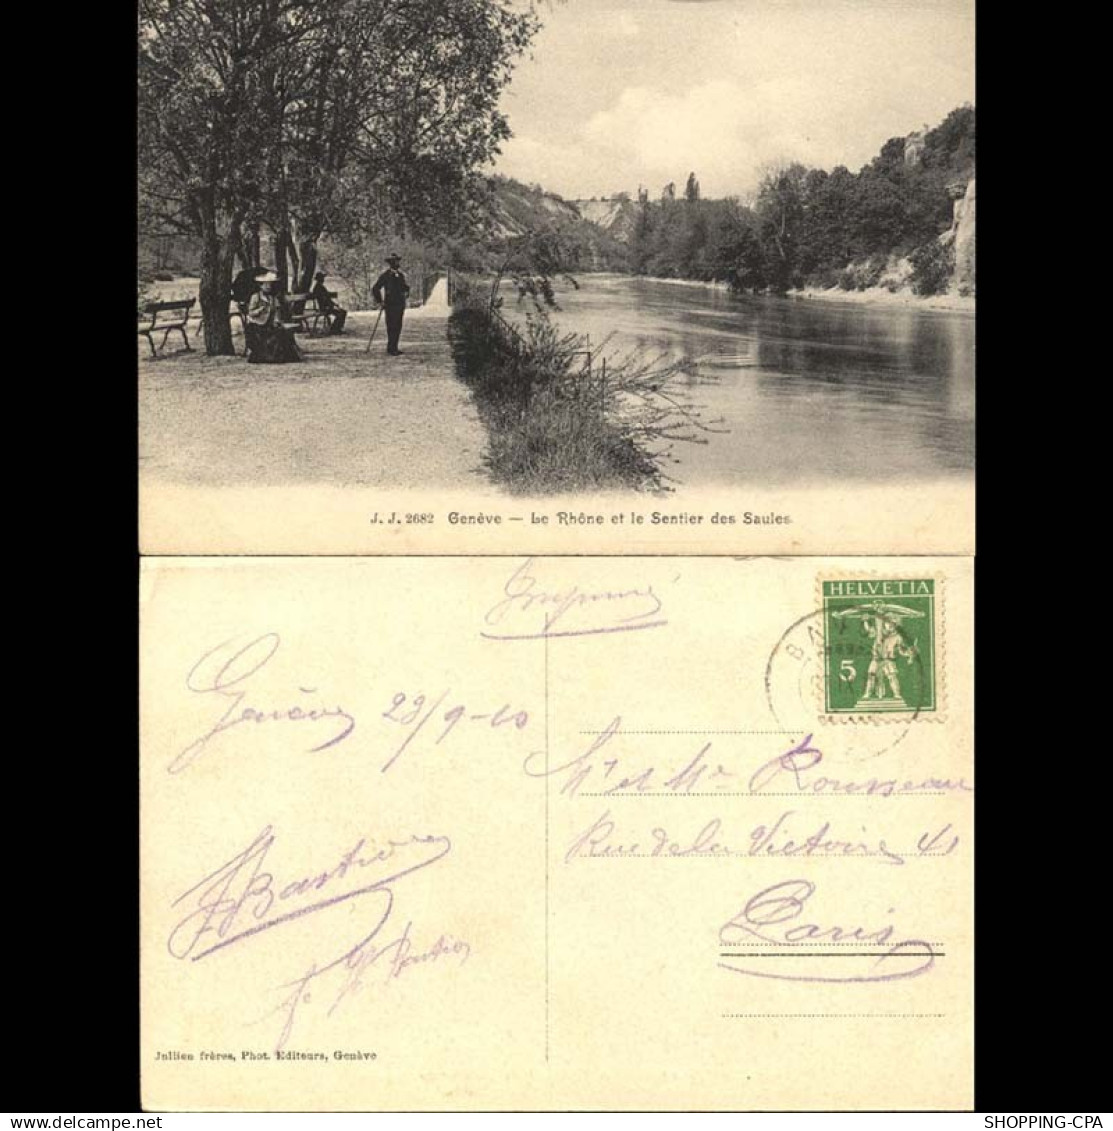 J. J. 2682 Genève — Le Rhône et le Sentier des Saules.
Imprimé
HELVETIA
5
Genève 28/9-10
Mr et Me Rousseau
Rue de la Victoire 41
Paris
Jullien frères, Phot. Editeurs, Genève
SHOPPING-CPA